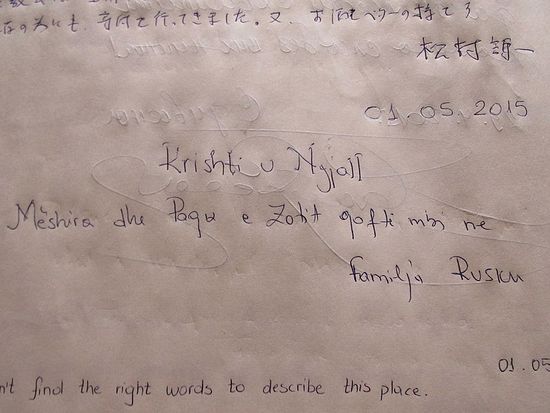 存の為にも、寄付を行ってきました。又、お酒もベラーの持てろ
松村 詔一
01.05.2015
Krishti u Ngjall
Mëshira dhe Paqja e Zotit qoftë mbi ne
Familja Rusku
01.05
n't find the right words to describe this place.